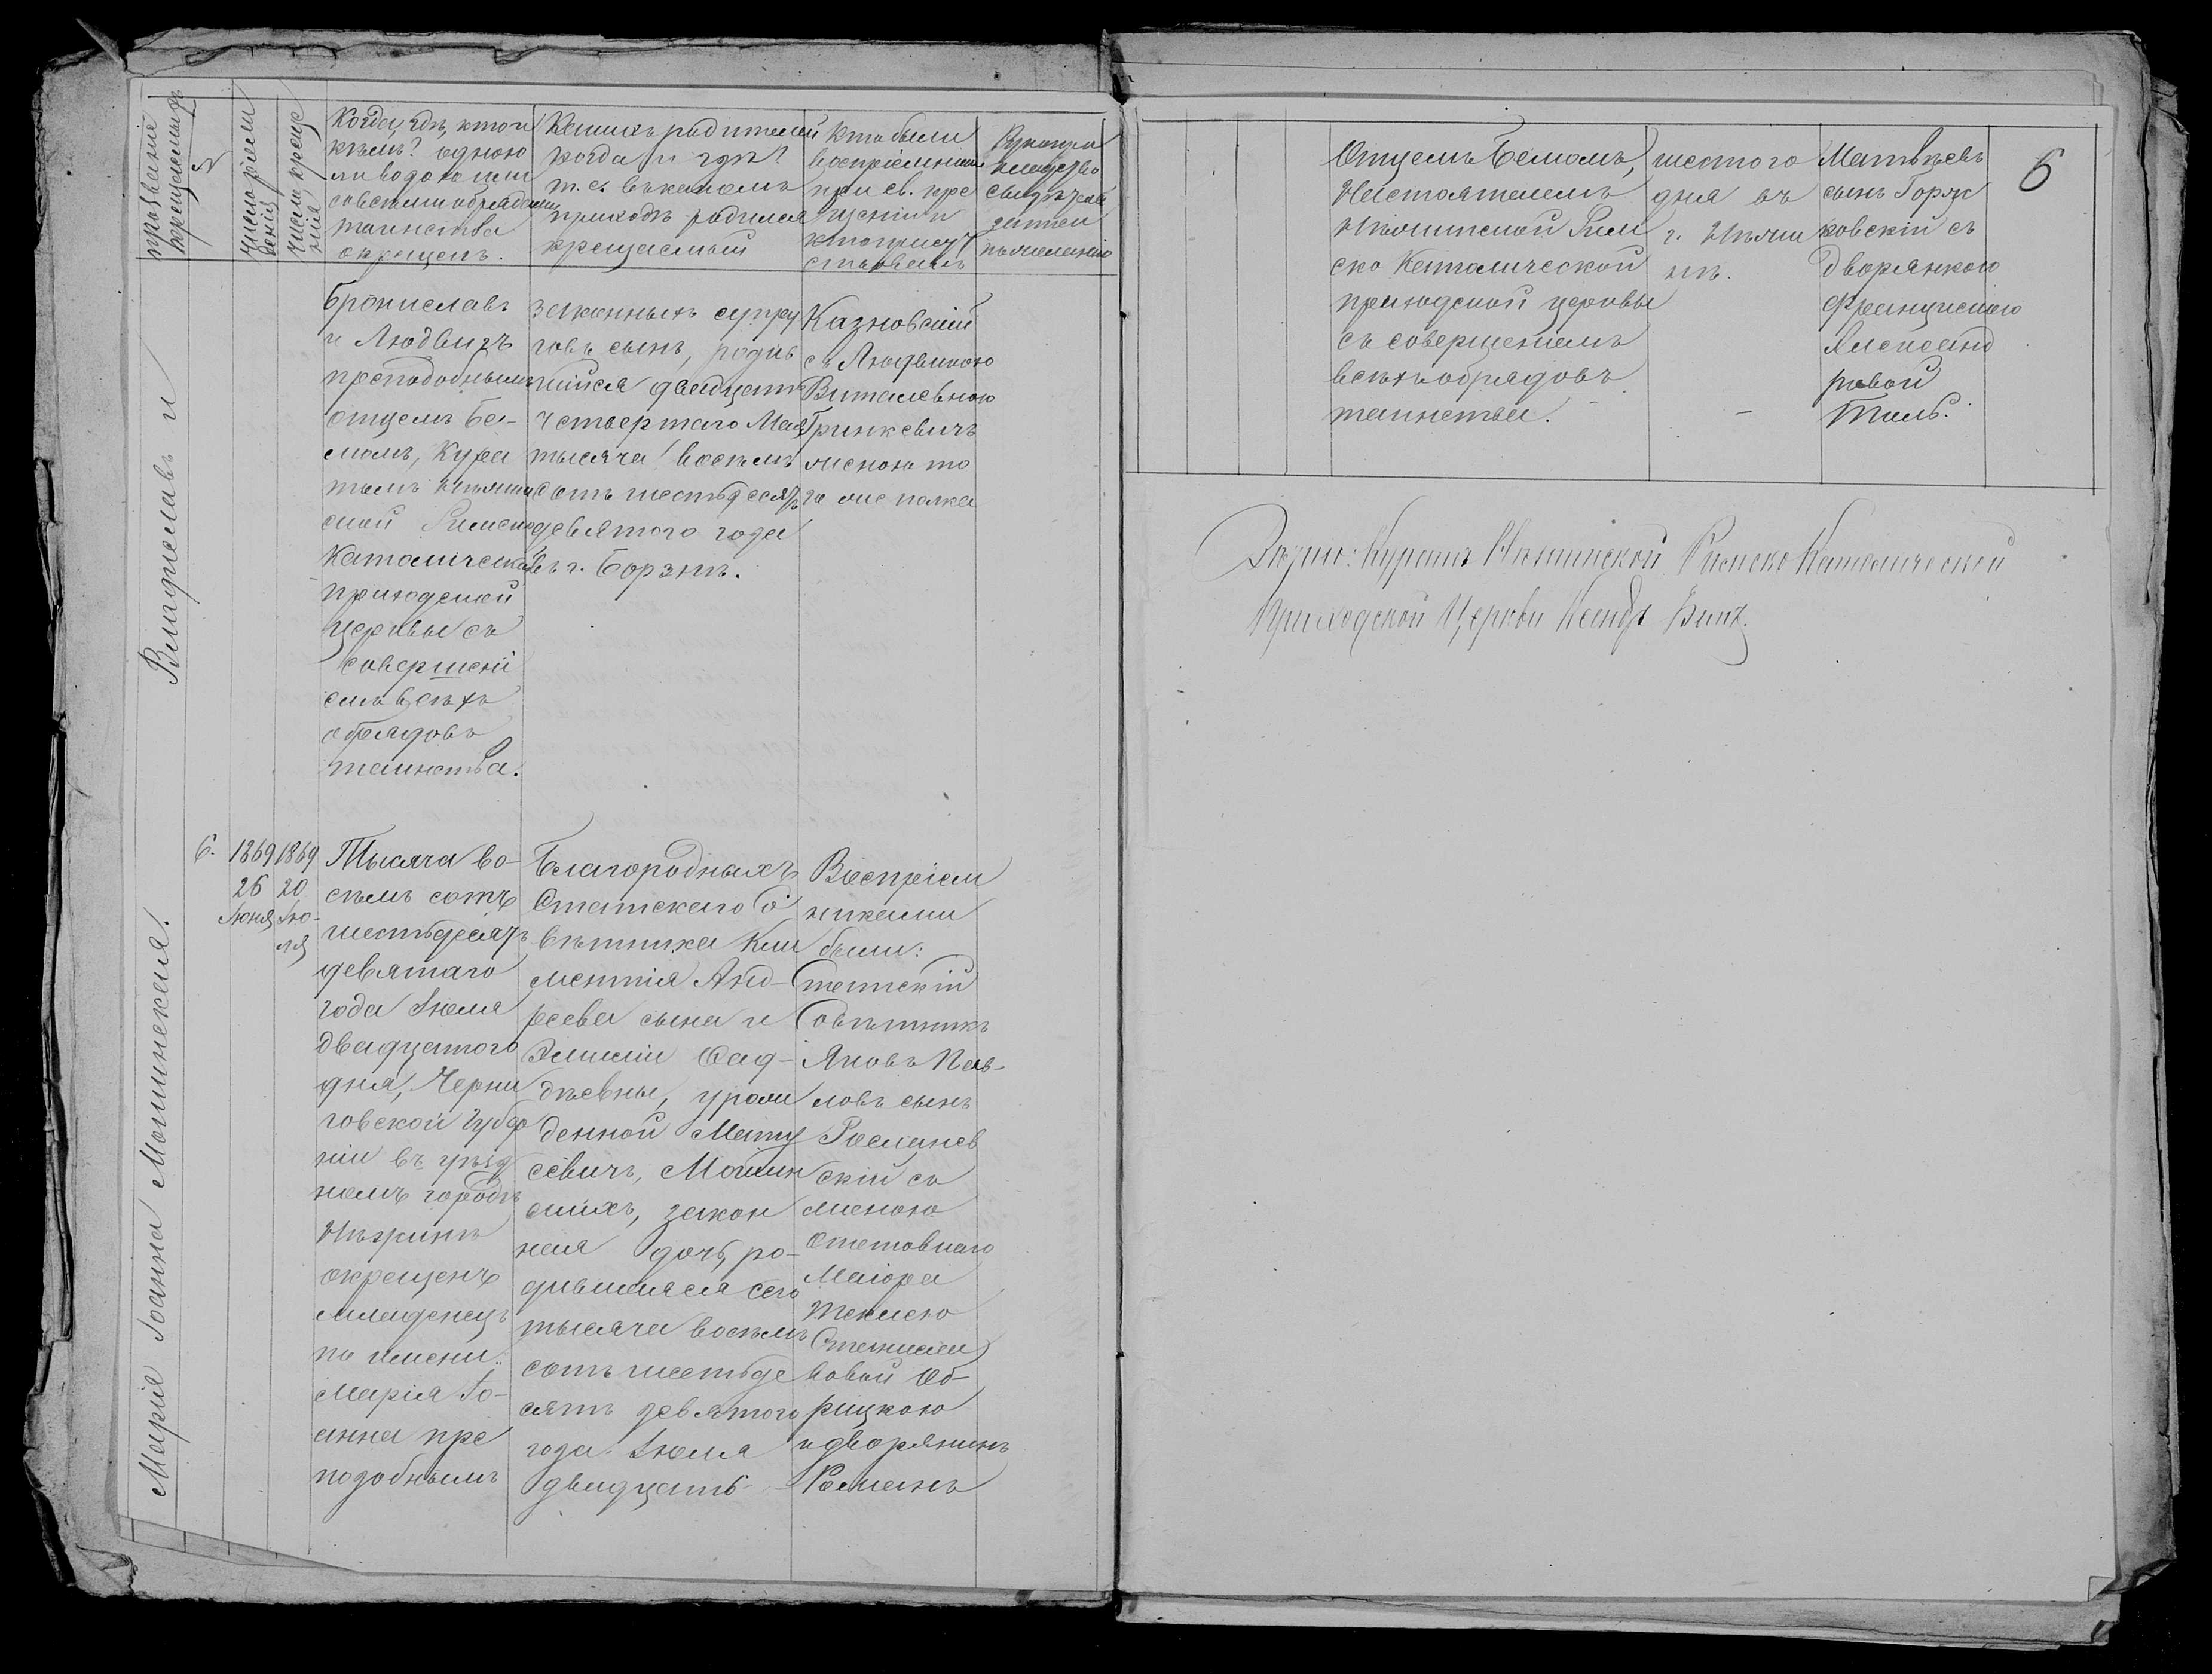 прозвание
крещаемаго
№
число рожд
денія
число креще
нія
Когда, гдѣ, кто и
кѣмъ? одною
ли водою или
со всѣми обрядами
таинства
окрещенъ.
Какихъ родителей
когда и гдѣ?
т. е. въ какомъ
приходѣ родился
крещаемый
Кто были
воспріемники
при св. кре
щеніи и
кто присут
ствовалъ
Владиславъ и
Брониславъ
и Людвигъ
преподобнымъ
отцемъ Бе-
момъ, Кура
томъ Нѣжин
ской Римско
Католической
приходской
церквы съ
совершені
емъ всѣхъ
обрядовъ
таинства.
законныхъ супру
говъ сынъ, родив
шійся двадцать
четвертаго Мая
тысяча восемь
сотъ шестьдесятъ
девятого года
въ г. Борзнѣ.
Казновскій
съ Людвикою
Виталевною
Гринкевичъ
женою то
го же полка
Марія Іоанна Мошинская.
6.
1869
26
Іюня
1869
20
Ію-
ля
Тысяча во-
семь сотъ
шестьдесятъ
девятаго
года Іюля
двадцатого
дня, Черни
говской Губер
ніи въ уѣзд
номъ городѣ
Нѣжинѣ
окрещенъ
младенецъ
по имени:
Марія Іо-
анна пре
подобнымъ
Благородныхъ
Статскаго Со
вѣтника Кли
ментія Анд-
реева сына и
Эмиліи Фад-
дѣевны, урож
денной Мату
севичъ, Мошин
скихъ, закон
ная дочь, ро-
дившаяся сего
тысяча восемь
сотъ шестьде
сятъ девятого
года Іюля
двадцать
Воспріем
никами
были:
Статскій
Совѣтникъ
Яковъ Пав-
ловъ сынъ
Романов
скій съ
женою
отставнаго
Маіора
Теклею
Станисла
вовой Об-
рицкою
и дворянинъ
Романъ
Отцемъ Бемомъ,
Настоятелемъ
Нѣжинской Рим
ско Католической
приходской церквы
съ совершеніемъ
всѣхъ обрядовъ
таинства.
шестого
дня въ
г. Нѣжи
нѣ.
Матвѣевъ
сынъ Горж
ковскій съ
дворянкою
Францискою
Александ
ровой
Тиль.
6
Куратъ Нѣжинской Римско Католической
Приходской Церкви Ксендзъ Бемъ.